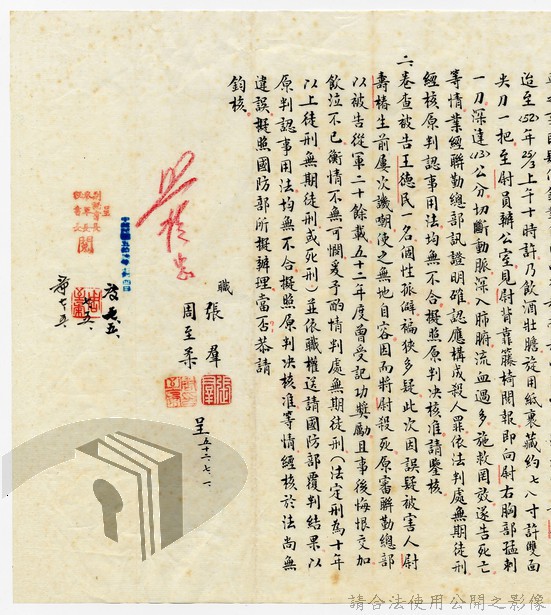 迨至(52)年29/3上午十時許乃飲酒壯膽旋用紙裹藏約七八寸許雙面
尖刀一把至尉員辦公室見尉背靠籐椅閱報即向尉右胸部猛刺
一刀深達(13)公分切斷動脈深入肺腑流血過多施救罔效遂告死亡
等情業經聯勤總部訊證明確認應構成殺人罪依法判處無期徒刑
經核原判認事用法均無不合擬照原判决核准請鑒核
二、卷查被告王德民一名個性孤僻褊狹多疑此次因誤疑被害人尉
壽椿生前屢次譏嘲使之無地自容因而將尉殺死原審聯勤總部
以被告從軍二十餘載五十二年度曾受記功獎勵且事後悔恨交加
飲泣不已衡情不無可憫爰予酌情判處無期徒刑(法定刑為十年
以上徒刑無期徒刑或死刑)並依職權送請國防部覆判結果以
原判認事用法均無不合擬照原判决核准等情經核於法尚無
違誤擬照國防部所擬辦理當否恭請
鈞核
職 張羣
周至柔 呈 五十三、七、一
請合法使用公開之影像